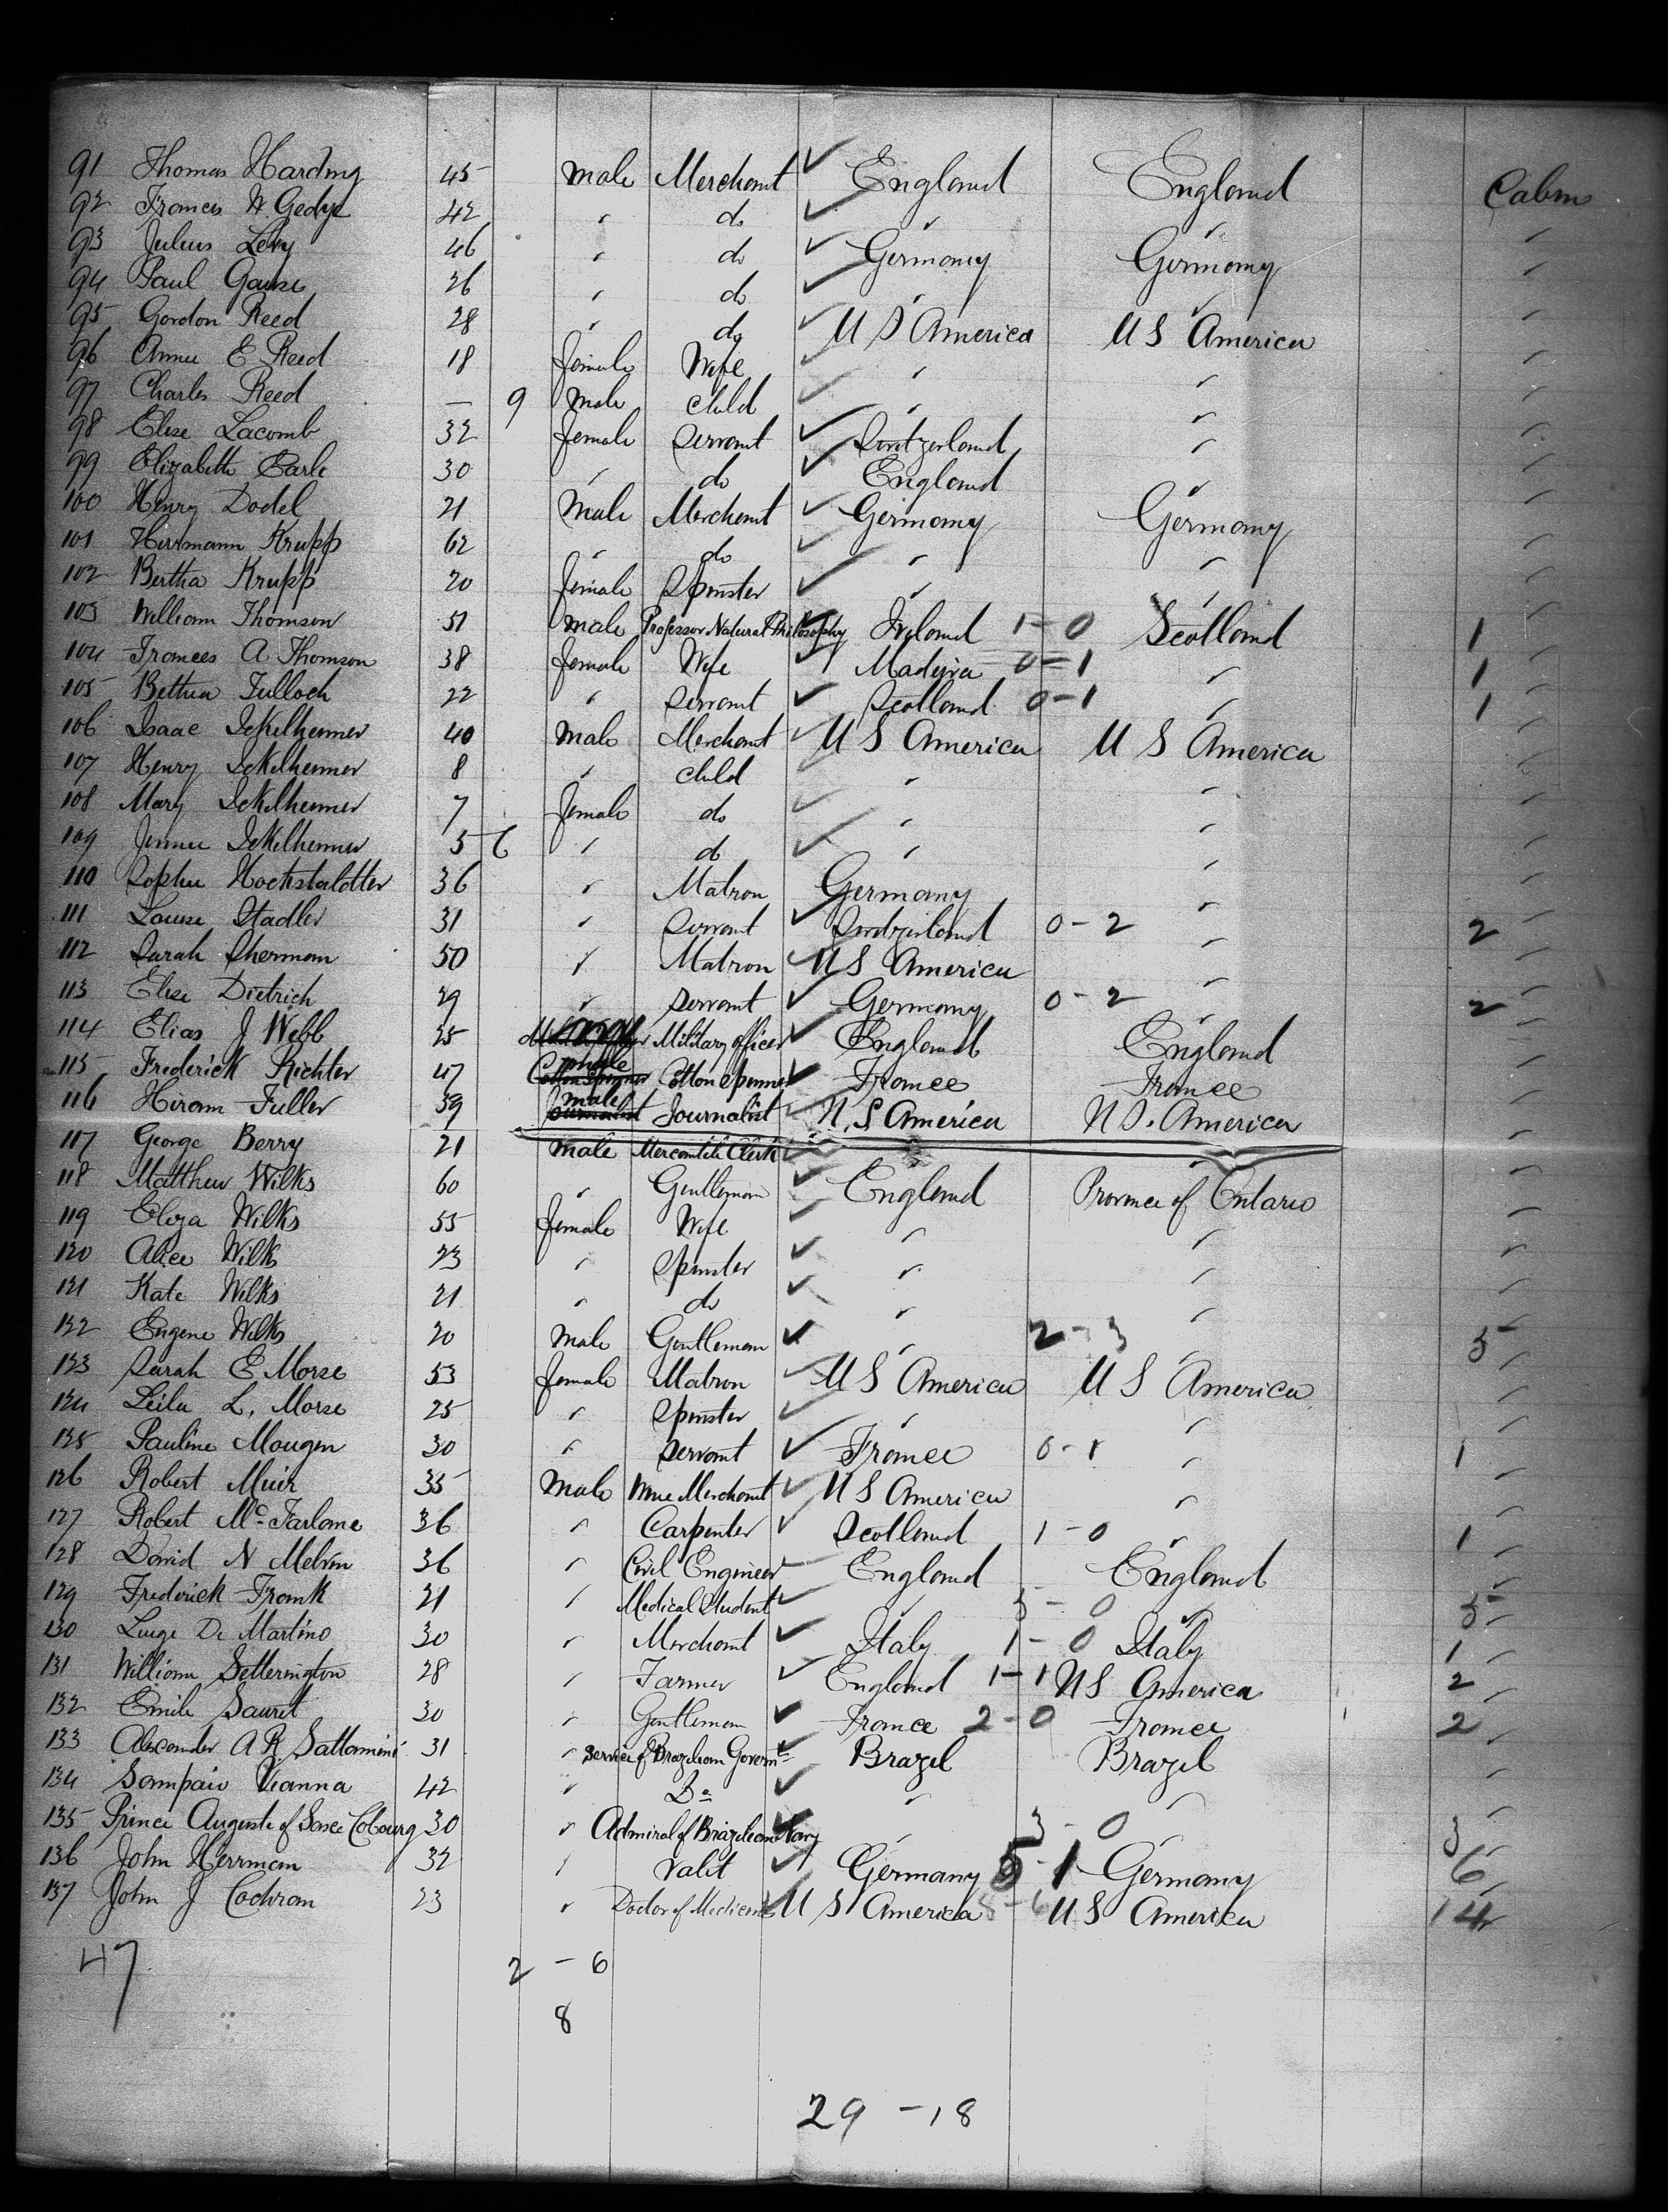 91 Thomas Harding 45 male Merchant ✓ England England Cabin
92 Frances W. Gedye 42 " do ✓ " " "
93 Julius Levy 46 " do ✓ Germany Germany "
94 Paul Gause 26 " do ✓ " " "
95 Gordon Reed 28 " do ✓ U S America U S America "
96 Annie E Reed 18 female Wife ✓ " " "
97 Charles Reed — 9 male child ✓ " " "
98 Elise Lacomb 32 female servant ✓ Switzerland " "
99 Elizabeth Earle 30 " do ✓ England " "
100 Henry Dodel 21 male Merchant ✓ Germany Germany "
101 Herrmann Krupp 62 " do ✓ " " "
102 Bertha Krupp 20 female Spinster ✓ " " "
103 William Thomson 51 male Professor Natural Philosophy ✓ Ireland 1-0 Scotland 1 "
104 Frances A Thomson 38 female Wife ✓ Madeira 0-1 " 1 "
105 Bethia Tulloch 22 " servant ✓ Scotland 0-1 " 1 "
106 Isaac Ickelheimer 40 male Merchant ✓ U S America U S America "
107 Henry Ickelheimer 8 " child " " "
108 Mary Ickelheimer 7 female do ✓ " " "
109 Jennie Ickelheimer 5 6 " do ✓ " " "
110 Sophie Hochstaldtter 36 " Matron Germany " "
111 Louise Stadler 31 " servant ✓ Switzerland 0-2 " 2 "
112 Sarah Sherman 50 " Matron ✓ U S America " "
113 Elise Dietrich 29 " servant ✓ Germany 0-2 " 2 "
114 Elias J Webb 25 Military officer ✓ England England "
115 Frederick Richter 47 male Cotton Spinner ✓ France France "
116 Hiram Fuller 59 male Journalist ✓ U.S America U S. America "
117 George Berry 21 male Mercantile Clerk ✓ " "
118 Matthew Wilks 60 " Gentleman ✓ England Province of Ontario "
119 Eliza Wilks 55 female Wife ✓ " " "
120 Alice Wilks 23 " Spinster ✓ " " "
121 Kate Wilks 21 " do ✓ " " "
122 Eugene Wilks 20 male Gentleman ✓ " 2-3 " 5 "
123 Sarah E Morse 53 female Matron ✓ U S America U S America "
124 Leila L. Morse 25 " Spinster ✓ " " "
125 Pauline Mougen 30 " servant ✓ France 0-1 " 1 "
126 Robert Muir 35 male Wine Merchant ✓ U S America " "
127 Robert McFarlane 36 " Carpenter ✓ Scotland 1-0 " 1 "
128 David N Melvin 36 " Civil Engineer ✓ England England "
129 Frederick Frank 21 " Medical Student ✓ " 5-0 " 5 "
130 Luige De Martino 30 " Merchant ✓ Italy 1-0 Italy 1 "
131 William Setterington 28 " Farmer ✓ England 1-1 U S America 2 "
132 Emile Sauret 30 " Gentleman ✓ France 2-0 France 2 "
133 Alexander A R. Sattamini 31 " Service of Brazilian Governmt ✓ Brazil Brazil "
134 Sampaio Vianna 42 " Do ✓ " " "
135 Prince Auguste of Saxe Cobourg 30 " Admiral of Brazilian Navy ✓ " 3-0 " 3 "
136 John Herrman 32 " Valet ✓ Germany 5-1 Germany 6 "
137 John J Cochran 23 " Doctor of Medicine ✓ U S America 8-6 U S America 14 "
47
2 - 6
8
29 - 18